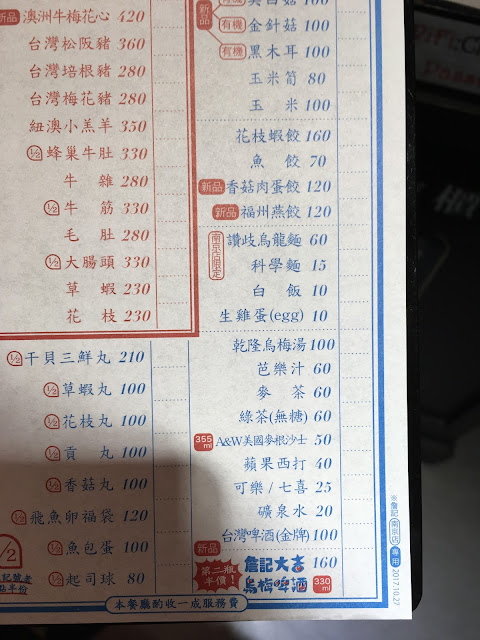 新品 澳洲牛梅花心 420
台灣松阪豬 360
台灣培根豬 280
台灣梅花豬 280
紐澳小羔羊 350
1/2 蜂巢牛肚 330
牛雜 280
1/2 牛筋 330
毛肚 280
1/2 大腸頭 330
草蝦 230
花枝 230
1/2 干貝三鮮丸 210
1/2 草蝦丸 100
1/2 花枝丸 100
1/2 貢丸 100
1/2 香菇丸 100
1/2 飛魚卵福袋 120
1/2 魚包蛋 100
1/2 起司球 80
1/2
記號者
點半份
新品
有機 金針菇 100
有機 黑木耳 100
玉米筍 80
玉米 100
花枝蝦餃 160
魚餃 70
新品 香菇肉蛋餃 120
新品 福州燕餃 120
南京店限定
讚岐烏龍麵 60
科學麵 15
白飯 10
生雞蛋(egg) 10
乾隆烏梅湯 100
芭樂汁 60
麥茶 60
綠茶(無糖) 60
355ml A&W美國麥根沙士 50
蘋果西打 40
可樂/七喜 25
礦泉水 20
台灣啤酒(金牌) 100
新品
第二瓶半價!
詹記大吉 160
烏梅啤酒 330ml
本餐廳酌收一成服務費
※詹記 南京店 專用 2017.10.27